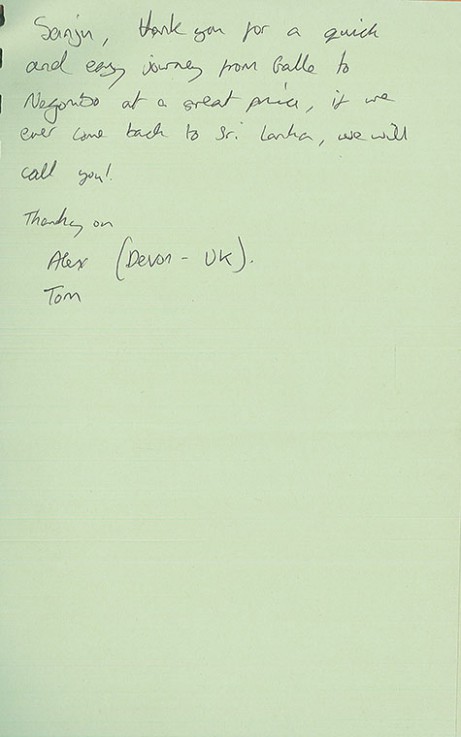 Sanju, thank you for a quick
and easy journey from Galle to
Negombo at a great price, if we
ever come back to Sri Lanka, we will
call you!
Thank you
Alex (Devon - UK).
Tom